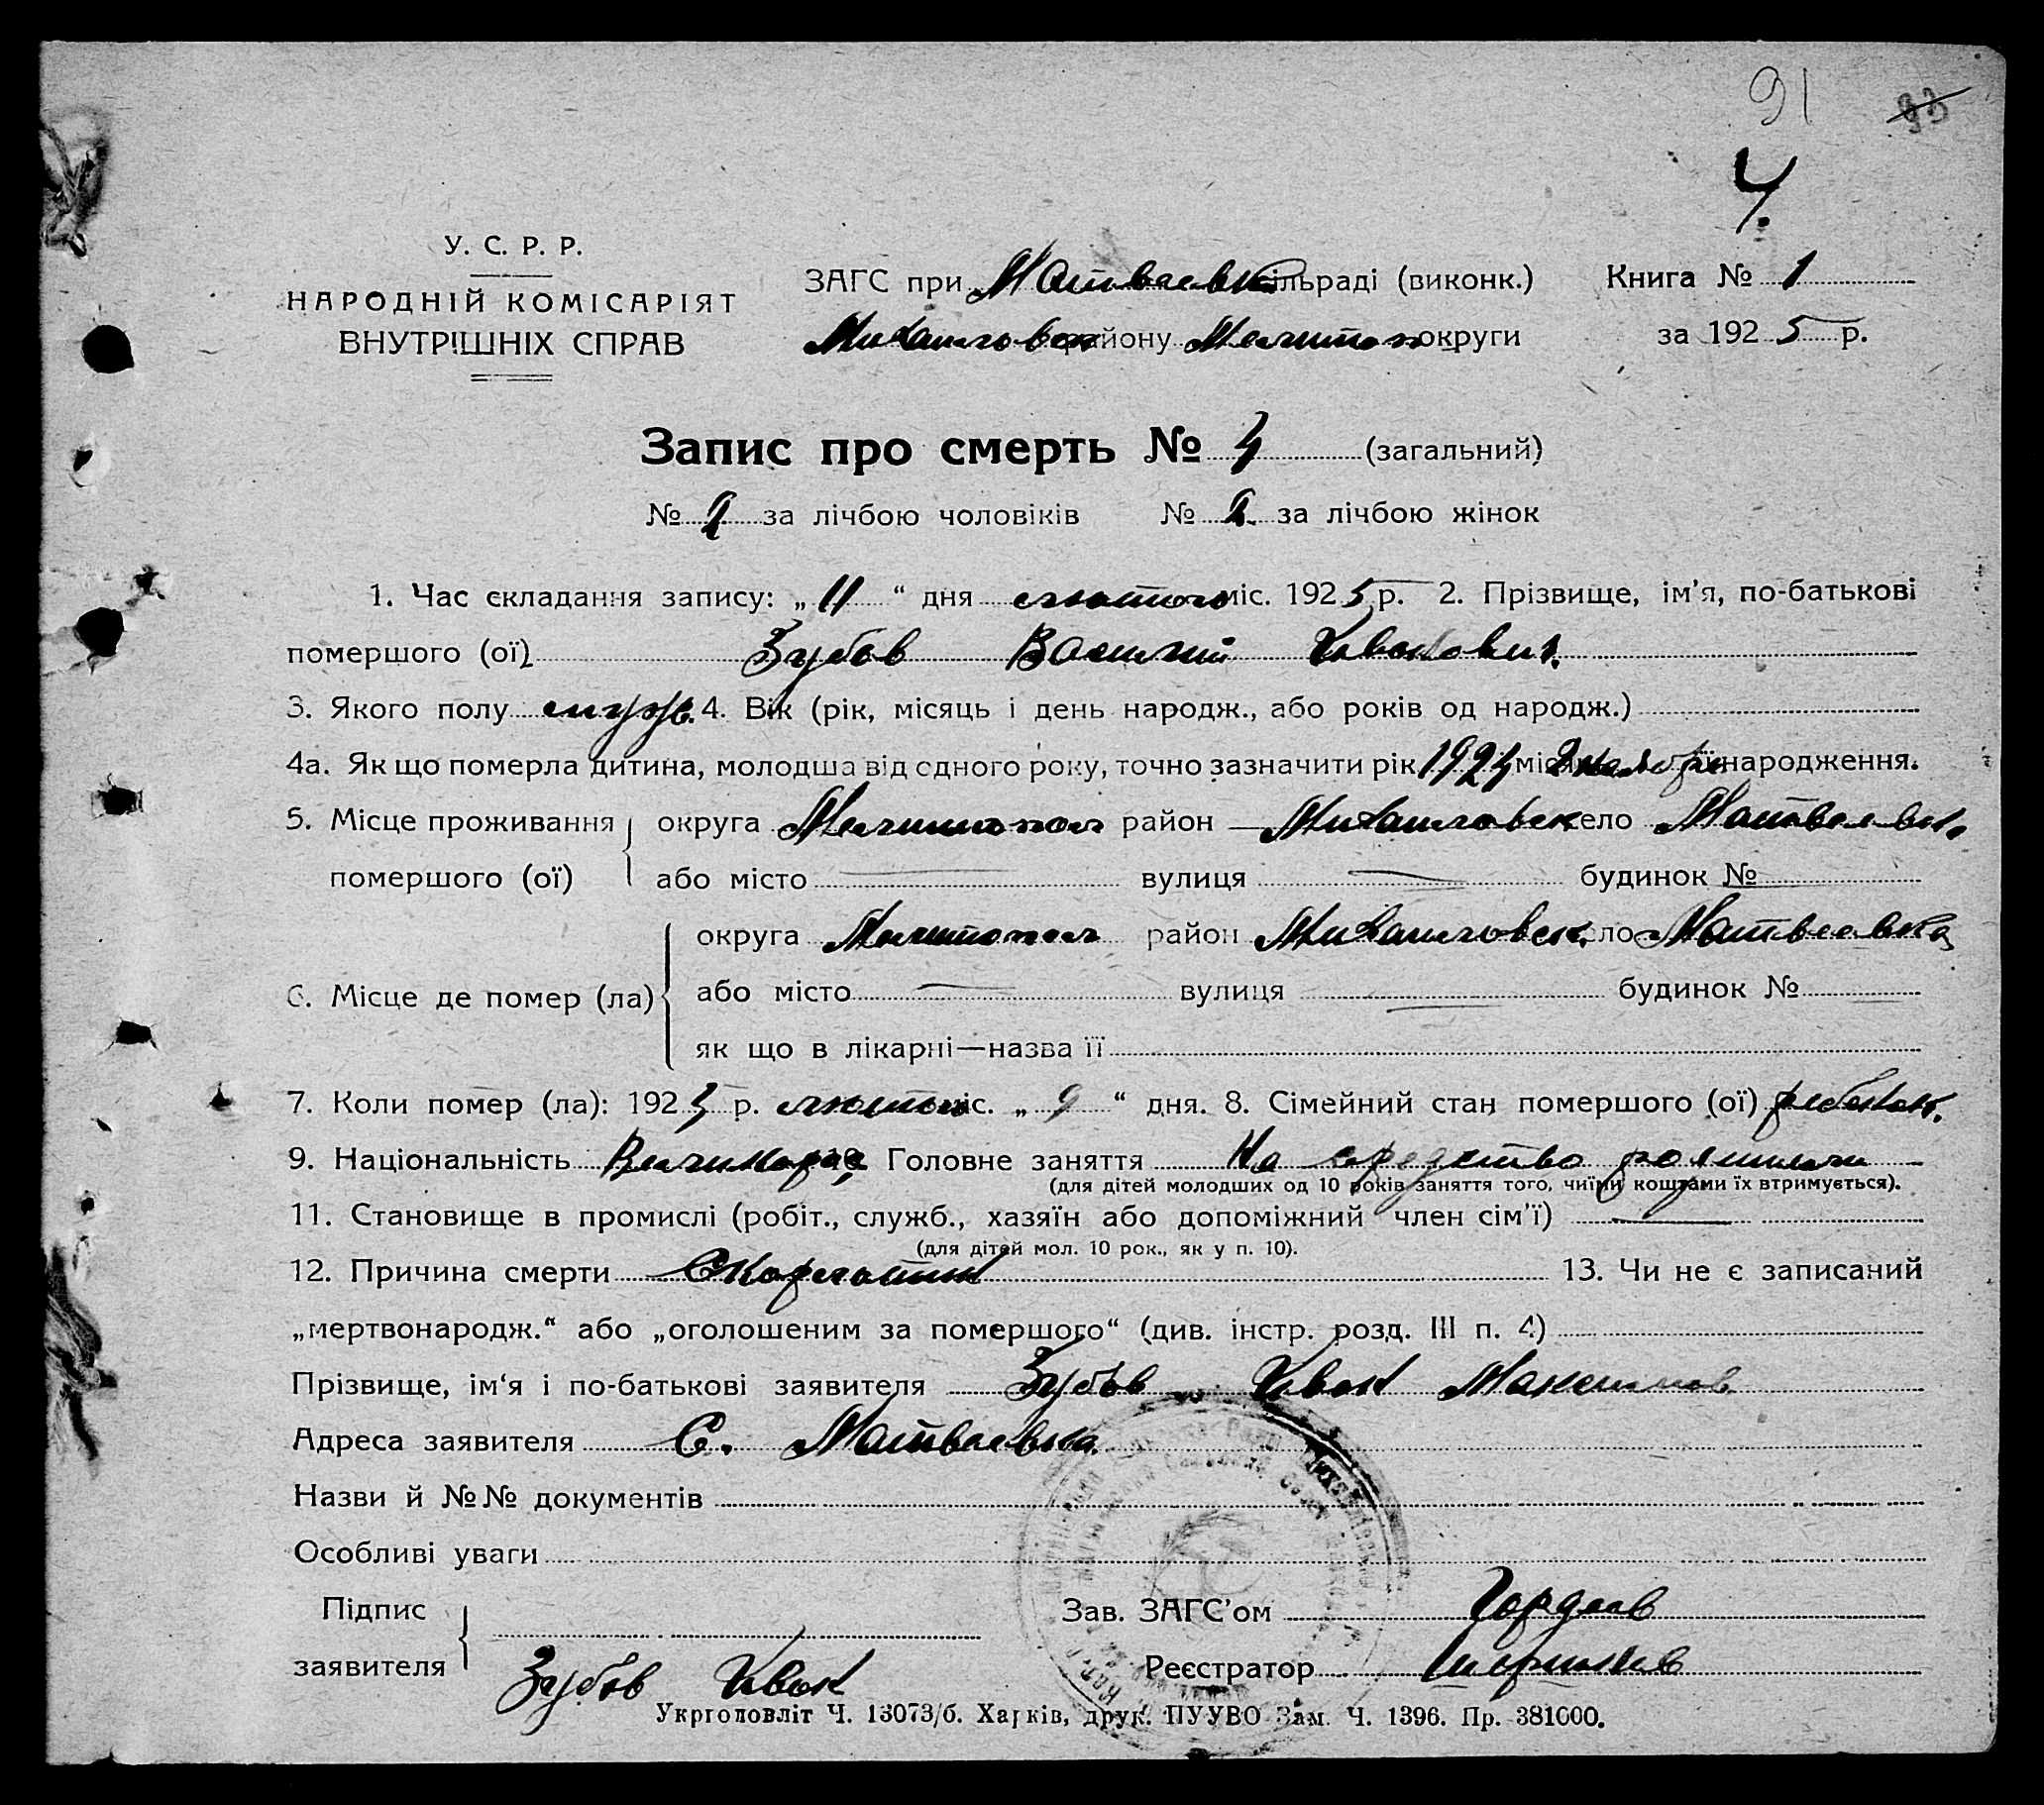 91 93
4.
У. С. Р. Р.
НАРОДНІЙ КОМІСАРІЯТ
ВНУТРІШНІХ СПРАВ
ЗАГС при Матваевк сільраді (виконк.) Книга № 1
Михайловск району Мелитоп округи за 1925 р.
Запис про смерть № 4 (загальний)
№ 2 за лічбою чоловіків № 2 за лічбою жінок
1. Час складання запису: „11“ дня лютого міс. 1925 р. 2. Прізвище, ім'я, по-батькові
помершого (ої) Зубов Василий Иванович.
3. Якого полу муж. 4. Вік (рік, місяць і день народж., або років од народж.)
4а. Як що померла дитина, молодша від одного року, точно зазначити рік 1924 народження.
5. Місце проживання округа Мелитопол район Михайловск село Матвеевк
помершого (ої) або місто — вулиця — будинок № —
округа Мелитопол район Михайловск село Матвеевка
6. Місце де помер (ла) або місто — вулиця — будинок № —
як що в лікарні—назва її
7. Коли помер (ла): 1925 р. лютого міс. „9“ дня. 8. Сімейний стан помершого (ої) ребенок.
9. Національність 10. Головне заняття На средство родители
(для дітей молодших од 10 років заняття того, чиїми коштами їх втримується).
11. Становище в промислі (робіт., служб., хазяїн або допоміжний член сім'ї) —
(для дітей мол. 10 рок., як у п. 10).
12. Причина смерти Скарлатин 13. Чи не є записаний
„мертвонародж.“ або „оголошеним за помершого“ (див. інстр. розд. III п. 4)
Прізвище, ім'я і по-батькові заявителя Зубов Иван Максимов
Адреса заявителя С. Матваевка
Назви й №№ документів
Особливі уваги
Підпис Зав. ЗАГС'ом Гордеев
заявителя Зубов Иван Реєстратор
Укрголовліт Ч. 13073/б. Харків, друк. ПУУВО Зам. Ч. 1396. Пр. 381000.